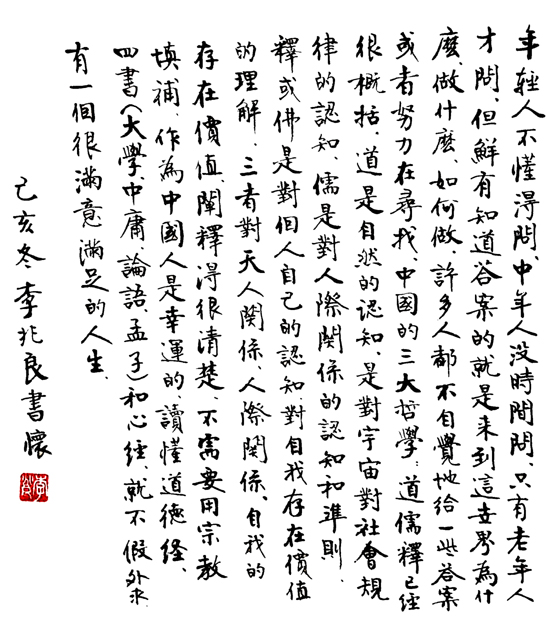 年輕人不懂得問、中年人没時間問、只有老年人
才問、但鮮有知道答案的就是来到這世界為什
麽、做什麽、如何做、許多人都不自覺地給一些答案
或者努力在尋找、中國的三大哲學：道儒釋已經
很概括、道是自然的認知、是對宇宙對社會規
律的認知、儒是對人際関係的認知和準則、
釋或佛是對個人自己的認知、對自我存在價值
的理解、三者對天人関係、人際関係、自我的
存在價值、闡釋得很清楚、不需要用宗教
填補、作為中國人是幸運的、讀懂道德經、
四書(大學、中庸、論語、孟子)和心経、就不假外求、
有一個很滿意滿足的人生、
己亥冬李兆良書懷